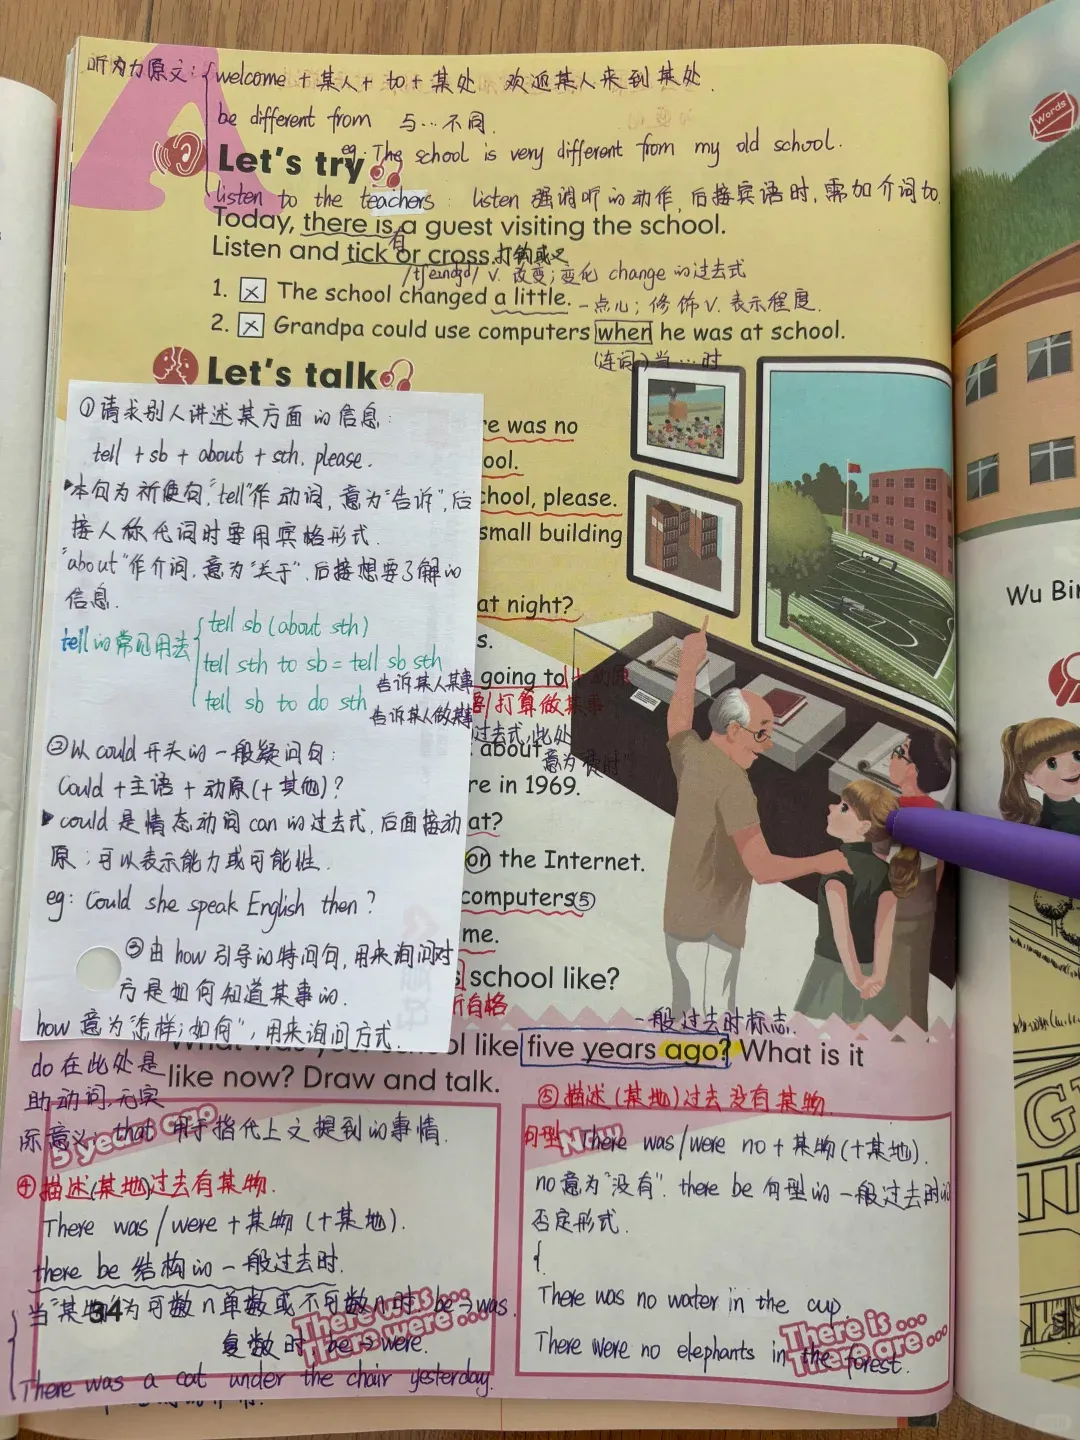 听力原文: welcome + 某人 + to + 某处 欢迎某人来到某处.
be different from 与…不同.
Let's try
eg: The school is very different from my old school.
listen to the teachers: listen 强调听的动作, 后接宾语时, 需加介词to.
Today, there is a guest visiting the school.
有
Listen and tick or cross. 打钩或叉
/tʃeɪndʒd/ v. 改变; 变化 change 的过去式
1. × The school changed a little. 一点儿; 修饰v. 表示程度.
2. × Grandpa could use computers when he was at school.
(连词) 当…时
Let's talk
①请求别人讲述某方面的信息:
tell + sb + about + sth, please.
本句为祈使句, "tell"作动词, 意为"告诉", 后
接人称代词时要用宾格形式.
"about"作介词, 意为"关于", 后接想要了解的
信息.
tell的常见用法
tell sb (about sth)
tell sth to sb = tell sb sth
告诉某人某事
tell sb to do sth
告诉某人做某事
②以could开头的一般疑问句:
Could + 主语 + 动原(+ 其他)?
could 是情态动词 can 的过去式, 后面接动
原; 可以表示能力或可能性.
eg: Could she speak English then?
③由how引导的特问句, 用来询问对
方是如何知道某事的.
how 意为"怎样; 如何", 用来询问方式.
re was no
ool.
chool, please.
small building
at night?
s.
going to + 动原
打算做某事
过去式, 此处
about
re in 1969.
at?
on the Internet.
computers ⑤
me.
school like?
所有格
一般过去时标志.
ol like five years ago? What is it
like now? Draw and talk.
do 在此处是
助动词, 无实
际意义. that 用于指代上文提到的事情.
5 years ago
④描述(某地)过去有某物.
There was / were + 某物 (+某地).
there be 结构的一般过去时.
当"某物"为可数n单数或不可数n时, be→was.
34
复数时 be→were.
There was ...
There were ...
There was a cat under the chair yesterday.
⑤描述(某地)过去没有某物
Now
句型 There was/were no + 某物(+某地).
no 意为"没有". there be 句型的一般过去时的
否定形式.
There was no water in the cup.
There were no elephants in the forest.
There is ...
There are ...
Words
Wu Bin